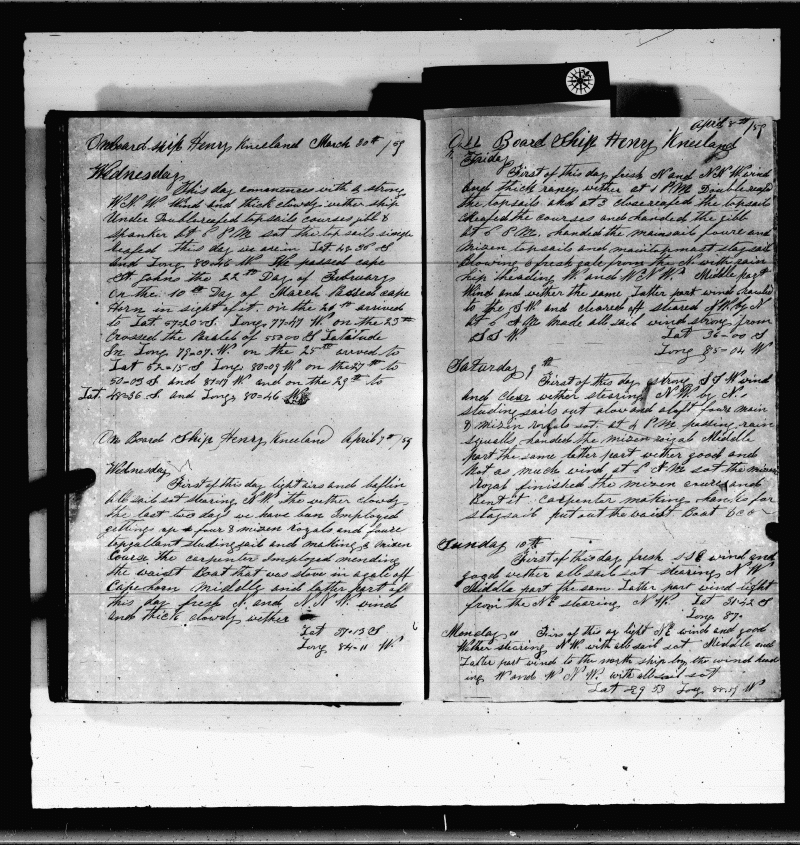 On Board Ship Henry Kneeland March 30th /59
Wednesday
This day comences with a strong
W.N.W wind and thick clowdy wether ship
Under Doublereefed topsails courses jibb &
spanker at 6 P.M. sat the topsails single
reefed this day we are in Lat 48-36 S
and Long 80-46 W We passed cape
St Johns the 22th Day of February
On the 10th Day of March Passed cape
Horn in sight of it. on the 20th arrived
to Lat 57-20 S. Long 77-47 W. on the 23th
Crossed the Paralel of 55-00 S Latatude
In Long 79-07. W on the 25th arrved to
Lat 52-15 S Long 80-09 W on the 27th to
50-03 S and 81-07 W and on the 29th to
Lat 48-36 S and Long 80-46
On Board Ship Henry Kneeland April 7th /59
Wednesday
First of this day light airs and baflin
all sail sat stearing N W the wether clowdy
the last two days we have ban Imployed
getting up a four & mizen royals and foure
topgallant studingsail and making a mizen
Course the carpenter Imployed mending
the waist Boat that was stove in a gale off
Cape horn Middle and latter part of
this day fresh N. and N.N.W. wind
and thick clowdy wether
Lat 37-13 S
Long 84-11 W
April 8th /59
On Board Ship Henry Kneeland
Friday
First of this day fresh N and N.N.W. wind
and thick raney wether at 1 P.M. Doublereefed
the topsails and at 3 closereefed the topsails
reefed the courses and handed the gibb
at 6 P.M. handed the mainsail foure and
mizen topsails and maintopmast staysail
blowing a fresh gale from the N with rain
ship heading W and W.N.W. Middle part
Wind and wether the same Latter part wind hauled
to the S.W. and cleared off steared N.W. by N
at 6 A.M. made all sail wind strong from
S S W. Lat 36-00 S
Long 85-04 W
Saturday 9th
First of this day strong S S W wind
and clear wether stearing N.W. by N.
studing sails out alow and aloft foure main
& mizen royals sat. at 4 P.M. passing rain
squalls handed the mizen royal Middle
part the same latter part wether good and
Not as much wind at 6 A.M. sat the mizen
Royal finished the mizen course and
Bent it carpenter making hanks for
staysail put out the waist Boat &co
Sunday 10th
First of this day fresh S S E wind and
good wether all sail sat stearing N W.
Middle part the sam. Latter part wind light
from the N.E. stearing N.W. Lat 31-42 S
Long 87-
Monday 11 Firs of this day light N.E winds and good
Wether stearing N.W. with all sail sat Middle and
Latter part wind to the north ship by the wind head
ing W and W.N.W. with all sail sat
Lat 29 53 Long W